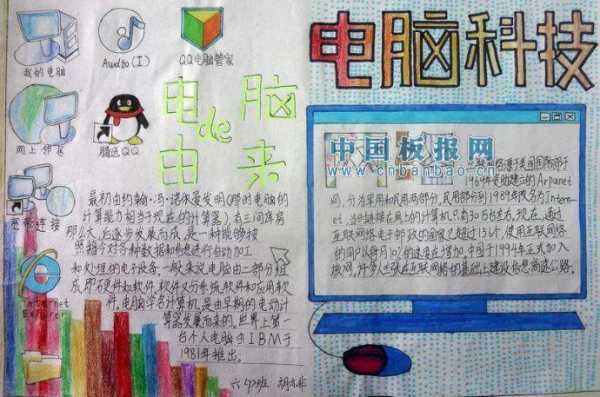 我的电脑
Audio(I)
QQ电脑管家
网上邻居
腾迅QQ
宽带连接
Internet
Explorer
电脑
de
由来
最初由约翰·冯·诺依曼发明(那时电脑的
计算能力相当于现在的计算器)有三间库房
那么大,后逐步发展而成。是一种能够按
照指令对各种数据和信息进行自动加工
和处理的电子设备。一般来说电脑由二部分组
成,即硬件和软件。软件又分系统软件和应用软
件。电脑学名计算机,是由早期的电动计
算器发展而来的。世界上第一
台个人电脑由IBM于
1981年推出。
电脑科技
中国板报网
www.cnbanbao.cn
1969年
建立的Arpanet
网,分为军用和民用两部分,民用部分到1989年改名为Inter-
net,当时连接在网上的计算机只有30万台左右,现在,通过
互联网络电子邮政的国家已超过136个,使用互联网络
的用户以每月10%的速度在增加,中国于1994年正式加入